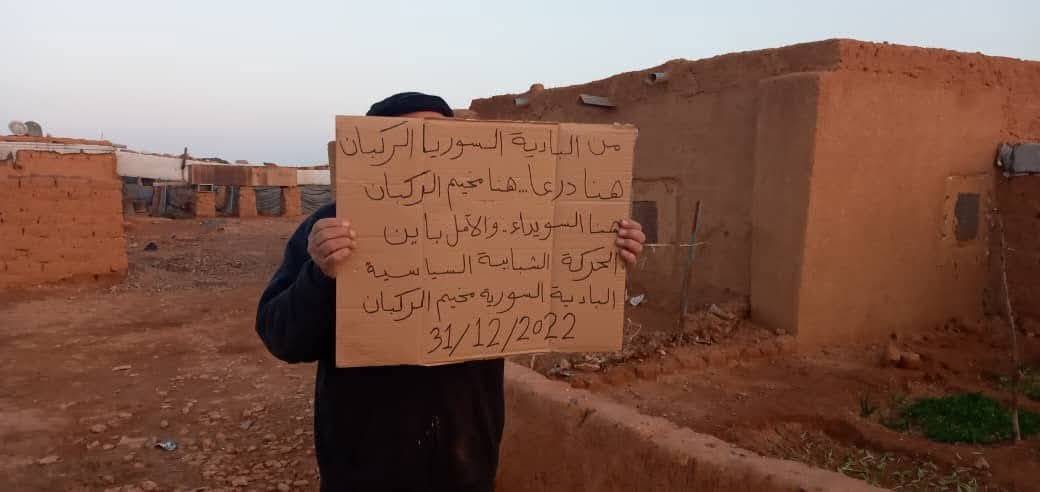 من البادية السوريا الركبان
هنا درعا...هنا مخيم الركبان
هنا السويداء. والآمل باين
الحركة الشبابية السياسية
البادية السورية مخيم الركبان
31/12/2022